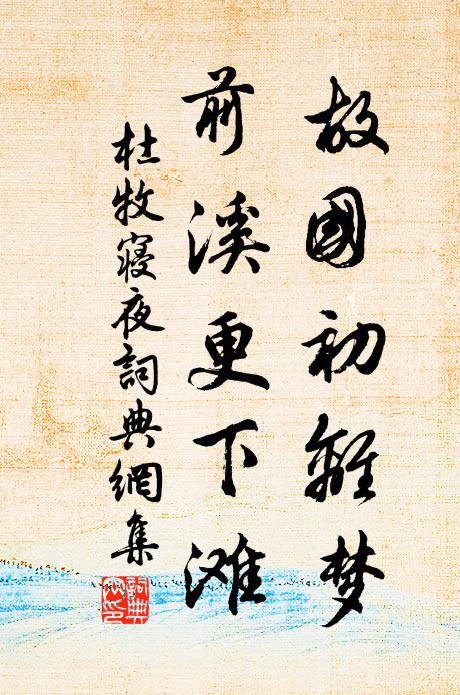 故國初離梦
前溪更下滩
杜牧寝夜詞典網集